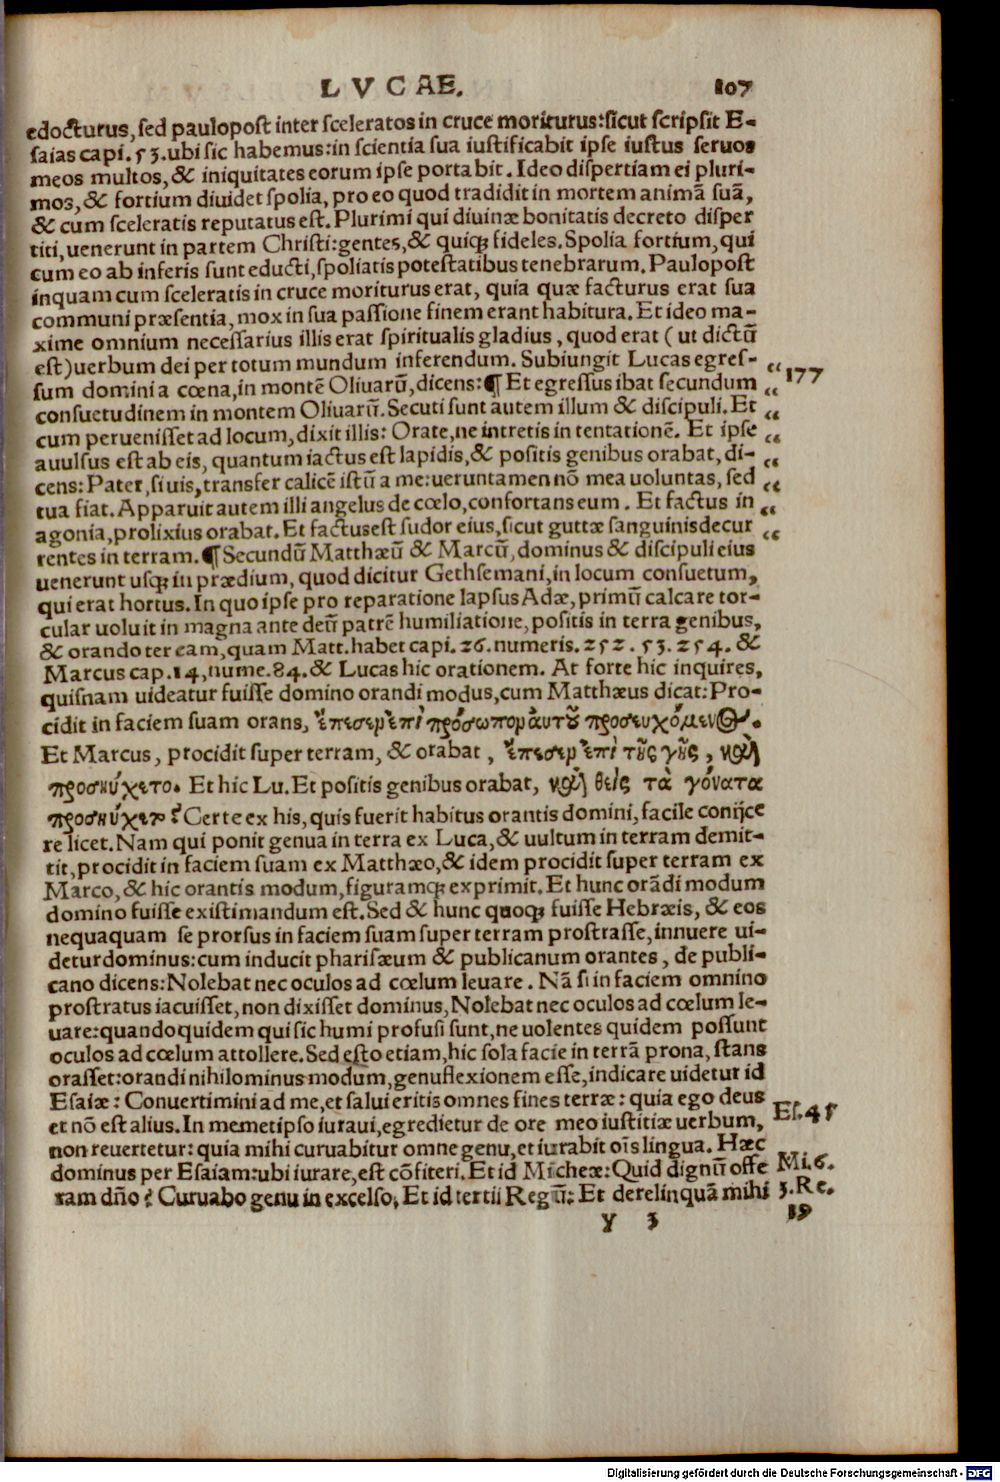 LVCAE. 107
edocturus, sed paulopost inter sceleratos in cruce moriturus: sicut scripsit E-
saias capi. 53. ubi sic habemus: in scientia sua iustificabit ipse iustus seruos
meos multos, & iniquitates eorum ipse portabit. Ideo dispertiam ei pluri-
mos, & fortium diuidet spolia, pro eo quod tradidit in mortem animā suā,
& cum sceleratis reputatus est. Plurimi qui diuinæ bonitatis decreto disper
titi, uenerunt in partem Christi: gentes, & quiqꝫ fideles. Spolia fortium, qui
cum eo ab inferis sunt educti, spoliatis potestatibus tenebrarum. Paulopost
inquam cum sceleratis in cruce moriturus erat, quia quæ facturus erat sua
communi præsentia, mox in sua passione finem erant habitura. Et ideo ma-
xime omnium necessarius illis erat spiritualis gladius, quod erat (ut dictū
est) uerbum dei per totum mundum inferendum. Subiungit Lucas egres- „
sum domini a cœna, in montē Oliuarū, dicens: ¶ Et egressus ibat secundum „ 177
consuetudinem in montem Oliuarū. Secuti sunt autem illum & discipuli. Et „
cum peruenisset ad locum, dixit illis: Orate, ne intretis in tentationē. Et ipse „
auulsus est ab eis, quantum iactus est lapidis, & positis genibus orabat, di- „
cens: Pater, si uis, transfer calicē istū a me: ueruntamen nō mea uoluntas, sed „
tua fiat. Apparuit autem illi angelus de cœlo, confortans eum. Et factus in „
agonia, prolixius orabat. Et factus est sudor eius, sicut guttæ sanguinis decur „
rentes in terram. ¶ Secundū Matthæū & Marcū, dominus & discipuli eius
uenerunt usqꝫ in prædium, quod dicitur Gethsemani, in locum consuetum,
qui erat hortus. In quo ipse pro reparatione lapsus Adæ, primū calcare tor-
cular uoluit in magna ante deū patrē humiliatione, positis in terra genibus,
& orando ter eam, quam Matt. habet capi. 26. numeris. 252. 53. 254. &
Marcus cap. 14, nume. 84. & Lucas hic orationem. At forte hic inquires,
quisnam uideatur fuisse domino orandi modus, cum Matthæus dicat: Pro-
cidit in faciem suam orans, ἔπεσεν ἐπὶ πρόσωπον αὑτοῦ προσευχόμενος.
Et Marcus, procidit super terram, & orabat, ἔπεσεν ἐπὶ τῆς γῆς, καὶ
προσηύχετο. Et hic Lu. Et positis genibus orabat, καὶ θεὶς τὰ γόνατα
προσηύχετο? Certe ex his, quis fuerit habitus orantis domini, facile conijce
re licet. Nam qui ponit genua in terra ex Luca, & uultum in terram demit-
tit, procidit in faciem suam ex Matthæo, & idem procidit super terram ex
Marco, & hic orantis modum, figuramqꝫ exprimit. Et hunc orādi modum
domino fuisse existimandum est. Sed & hunc quoqꝫ fuisse Hebræis, & eos
nequaquam se prorsus in faciem suam super terram prostrasse, innuere ui-
detur dominus: cum inducit pharisæum & publicanum orantes, de publi-
cano dicens: Nolebat nec oculos ad cœlum leuare. Nā si in faciem omnino
prostratus iacuisset, non dixisset dominus, Nolebat nec oculos ad cœlum le-
uare: quandoquidem qui sic humi profusi sunt, ne uolentes quidem possunt
oculos ad cœlum attollere. Sed esto etiam, hic sola facie in terrā prona, stans
orasset: orandi nihilominus modum, genuflexionem esse, indicare uidetur id
Esaiæ: Conuertimini ad me, et salui eritis omnes fines terræ: quia ego deus Es. 45
et nō est alius. In memetipso iuraui, egredietur de ore meo iustitiæ uerbum,
non reuertetur: quia mihi curuabitur omne genu, et iurabit oīs lingua. Hæc
dominus per Esaiam: ubi iurare, est cōfiteri. Et id Micheæ: Quid dignū offe Mi. 6.
ram dño? Curuabo genu in excelso. Et id tertii Regū: Et derelinquā mihi 3. Re.
y 3 19
Digitalisierung gefördert durch die Deutsche Forschungsgemeinschaft - DFG